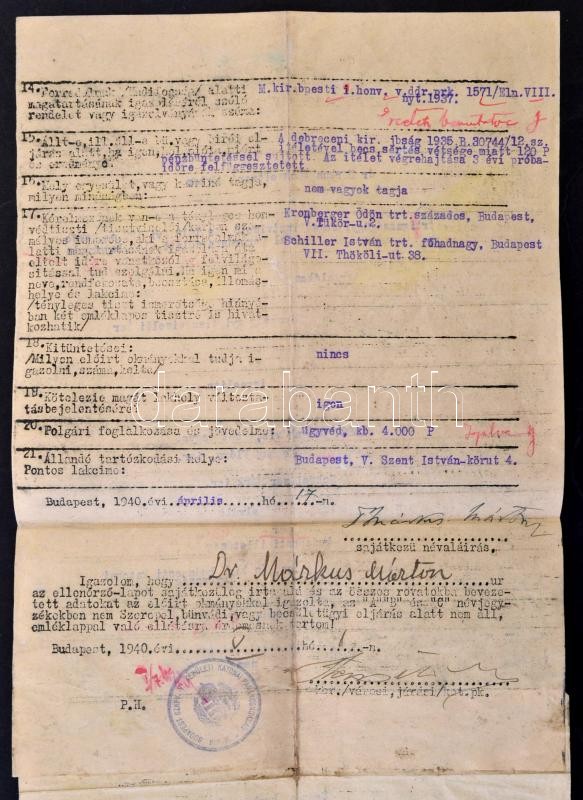 14. Forradalmak /Hadifogság/ alatti
magatartásának igazolásáról szóló
rendelet vagy igazolvány száma:
M.kir.bpesti 1.honv. v.ddr.prk. 1571/Eln.VIII.
nyt.1937.
15. Állt-e, ill. áll-e bű vagy birói el-
járás alatt ha igen,
és eredménye:
A debreceni kir. jbság 1935.B.30744/12.sz.
itéletével becs.sértés vétsége miatt 120 P
pénzbüntetéssel sujtott Az itélet végrehajtása 3 évi próba-
időre felfüggesztetett
16. Mely egyesület, vagy kaszinó tagja,
milyen minőségben:
nem vagyok tagja
17. Kérelmezőnek van-e a tényleges hon-
védtiszti /tisztviselői/ karban sze-
mélyes ismerőse, aki a forradalmak
alatti magatartásának
eltölt időre vonatkozólag felvilágo-
sitással tud szolgálni. Ha igen mi a
neve, rendfokozata, beosztása, állomás-
helye és lakcime:
/tényleges tiszt ismerősök hiányá-
ban két emléklapos tisztre is hivat-
kozhatik/
Kronberger Ödön trt.százados, Budapest,
V.Tükör-u.2.
Schiller István trt. főhadnagy, Budapest
VII. Thököli-ut 38.
18. Kitüntetései:
/Milyen előirt okmányokkal tudja i-
gazolni, száma, kelte/
nincs
19. Kötelezie magát lakhely változta-
tásbejelentésére:
igen
20. Polgári foglalkozása és jövedelme:
ügyvéd, kb. 4.000 P
21. Állandó tartózkodási helye:
Pontos lakcime:
Budapest, V. Szent István-körut 4.
Budapest, 1940.évi április hó 17.-n.
Márkus Márton
sajátkezü névaláirás.
Igazolom, hogy Dr Márkus Márton ur
az ellenőrző-lapot sajátkezüleg irta alá és az összes rovatokba beveze-
tett adatokat az előirt okmányokkal igazolta, az "A" "B" és "C" névjegy-
zékekben nem Szerepel, bünvádi vagy becsületügyi eljárás alatt nem áll,
emléklappal való ellátásra érdemesnek tartom!
Budapest, 1940.évi V hó -n.
P.H.
ker./városi, járási/kat.pk.
databanth